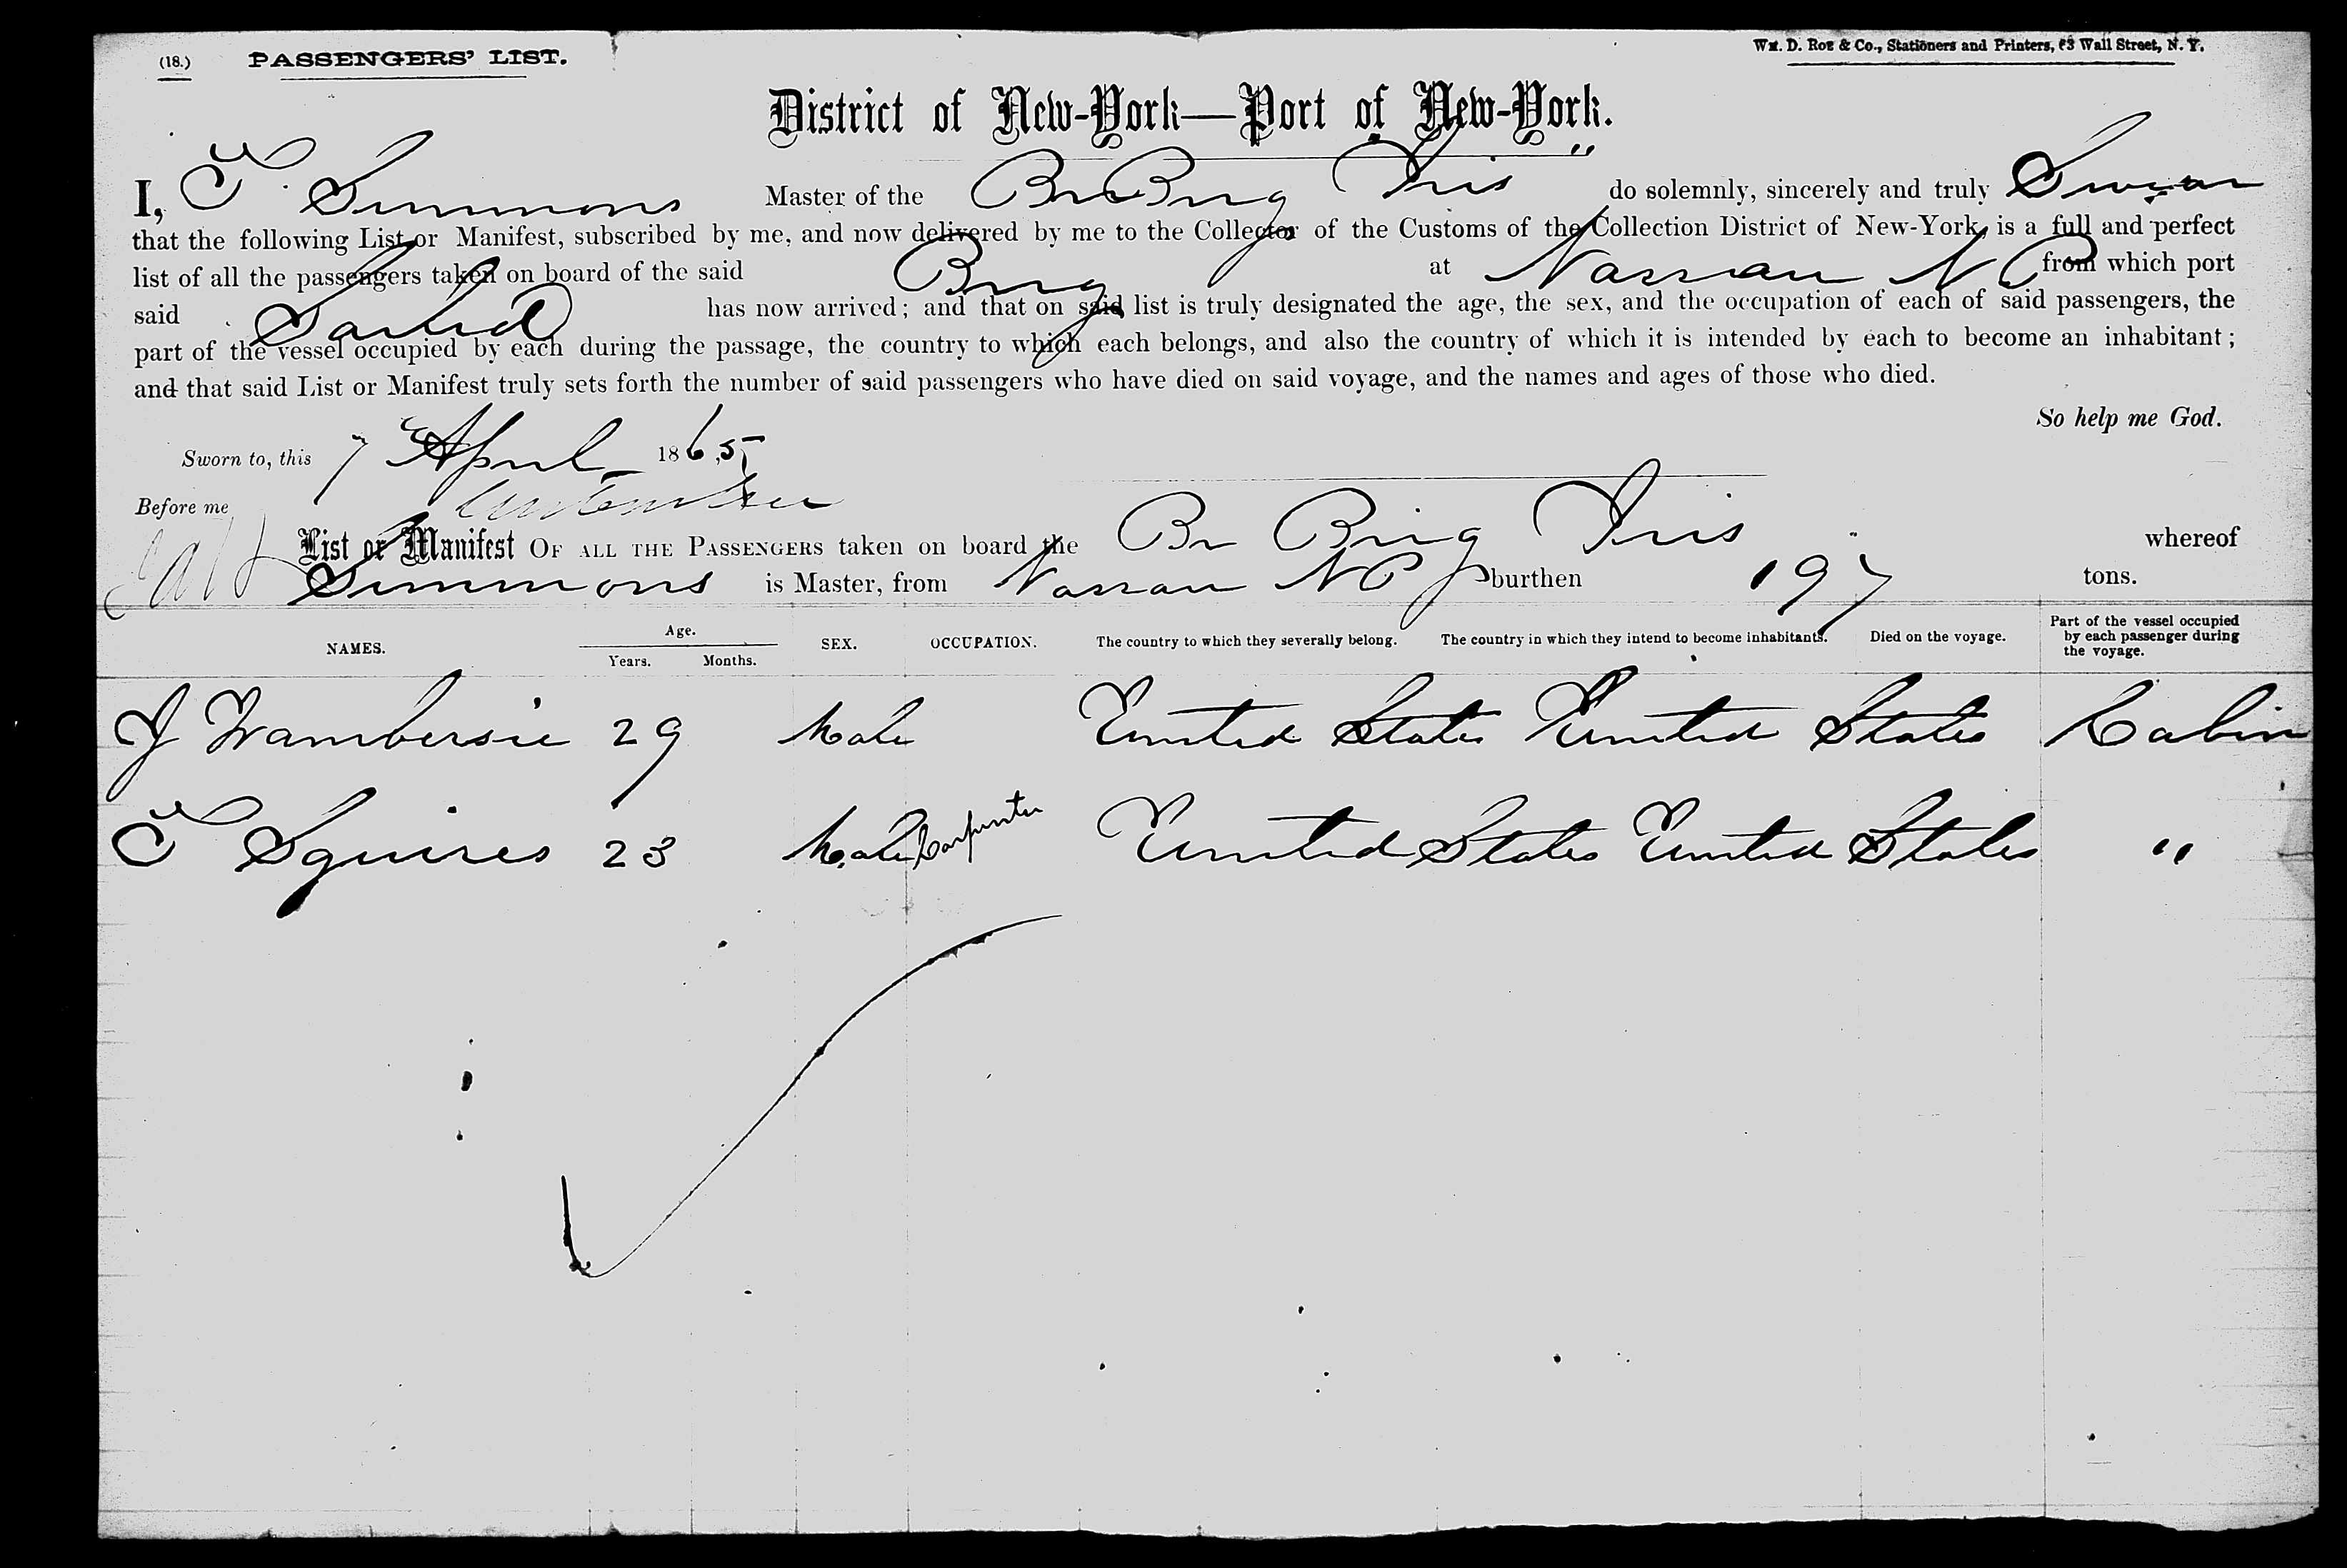 (18.) PASSENGERS' LIST. Wm. D. Roe & Co., Stationers and Printers, 63 Wall Street, N. Y.
District of New-York—Port of New-York.
I, T. Simmons Master of the Br Brig "Iris" do solemnly, sincerely and truly Swear
that the following List or Manifest, subscribed by me, and now delivered by me to the Collector of the Customs of the Collection District of New-York, is a full and perfect
list of all the passengers taken on board of the said Brig at Nassau N P from which port
said Sailed has now arrived; and that on said list is truly designated the age, the sex, and the occupation of each of said passengers, the
part of the vessel occupied by each during the passage, the country to which each belongs, and also the country of which it is intended by each to become an inhabitant;
and that said List or Manifest truly sets forth the number of said passengers who have died on said voyage, and the names and ages of those who died.
So help me God.
Sworn to, this 7 April 1865
Before me
List or Manifest OF ALL THE PASSENGERS taken on board the Br Brig Iris whereof
Simmons is Master, from Nassau N P burthen 197 tons.
NAMES. Age. Years. Months. SEX. OCCUPATION. The country to which they severally belong. The country in which they intend to become inhabitants. Died on the voyage. Part of the vessel occupied by each passenger during the voyage.
J Wambersie 29 Male United States United States Cabin
T Squires 23 Male Carpenter United States United States "